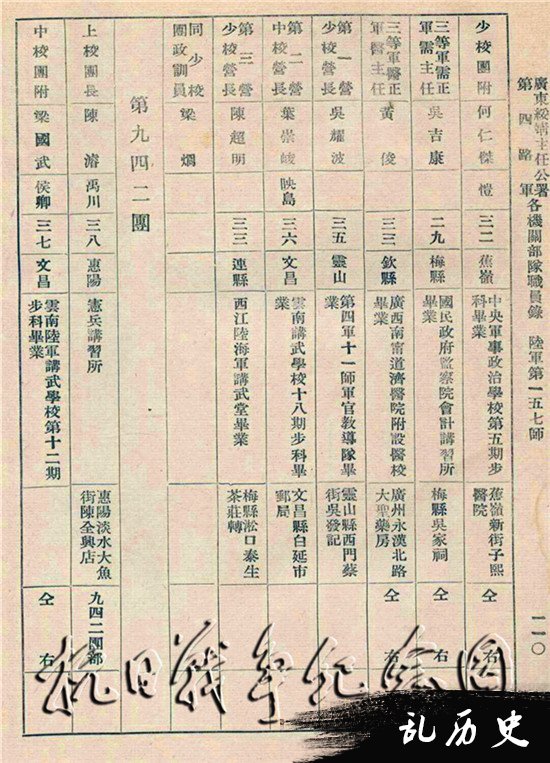 廣東綏靖主任公署
第四路軍
各機關部隊職員錄
陸軍第一五七師
一一〇
少校團附 何仁傑 愷 三二 蕉嶺 中央軍事政治學校第五期步科畢業 蕉嶺新街子熙醫院 仝右
三等軍需正軍需主任 吳吉康 二九 梅縣 國民政府監察院會計講習所畢業 梅縣吳家祠 仝右
三等軍醫正軍醫主任 黃俊 三三 欽縣 廣西南甯道濟醫院附設醫校畢業 廣州永漢北路大聖藥房 仝右
第一營少校營長 吳耀波 三五 靈山 第四軍十一師軍官教導隊畢業 靈山縣西門蔡街吳發記
第二營中校營長 葉崇峻 映島 三六 文昌 雲南講武學校十八期步科畢業 文昌縣白延市郵局
第三營少校營長 陳超明 三三 連縣 西江陸海軍講武堂畢業 梅縣淞口泰生茶莊轉
同少校團政訓員 梁燗
第九四二團
上校團長 陳濬 禹川 三八 惠陽 憲兵講習所 惠陽淡水大魚街陳全興店 九四二團部
中校團附 梁國武 侯卿 三七 文昌 雲南陸軍講武學校第十二期步科畢業 仝右
抗日战争纪念网
乱历史